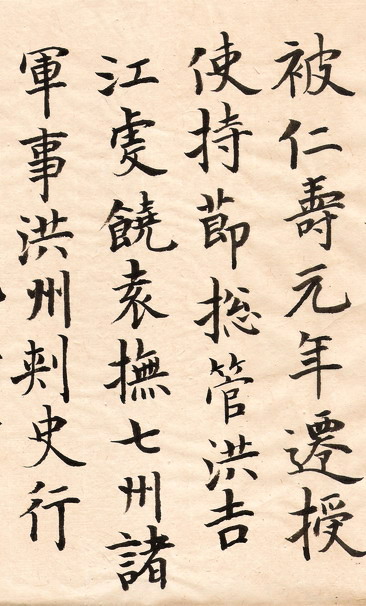 被仁壽元年遷授
使持節揔管洪吉
江虔饒袁撫七州諸
軍事洪州刾史行